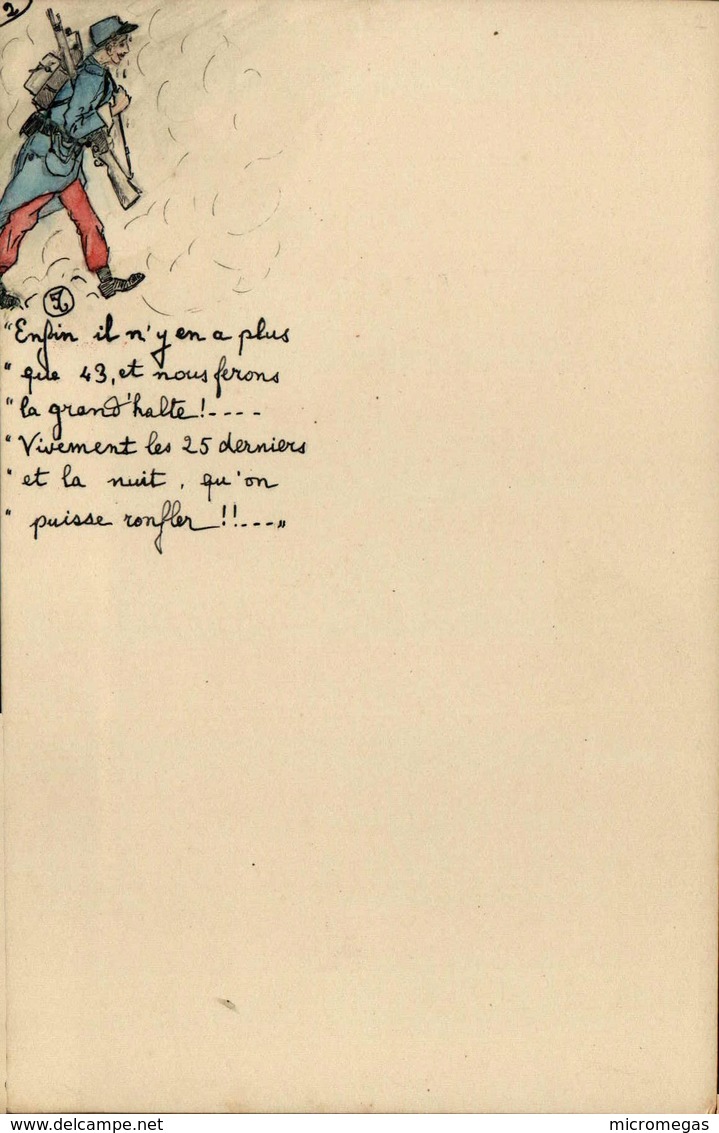 2
"Enfin il n'y en a plus
" que 43, et nous ferons
" la grand'halte!----
" Vivement les 25 derniers
" et la nuit, qu'on
" puisse ronfler!!---"
delcampe.net
micromegas